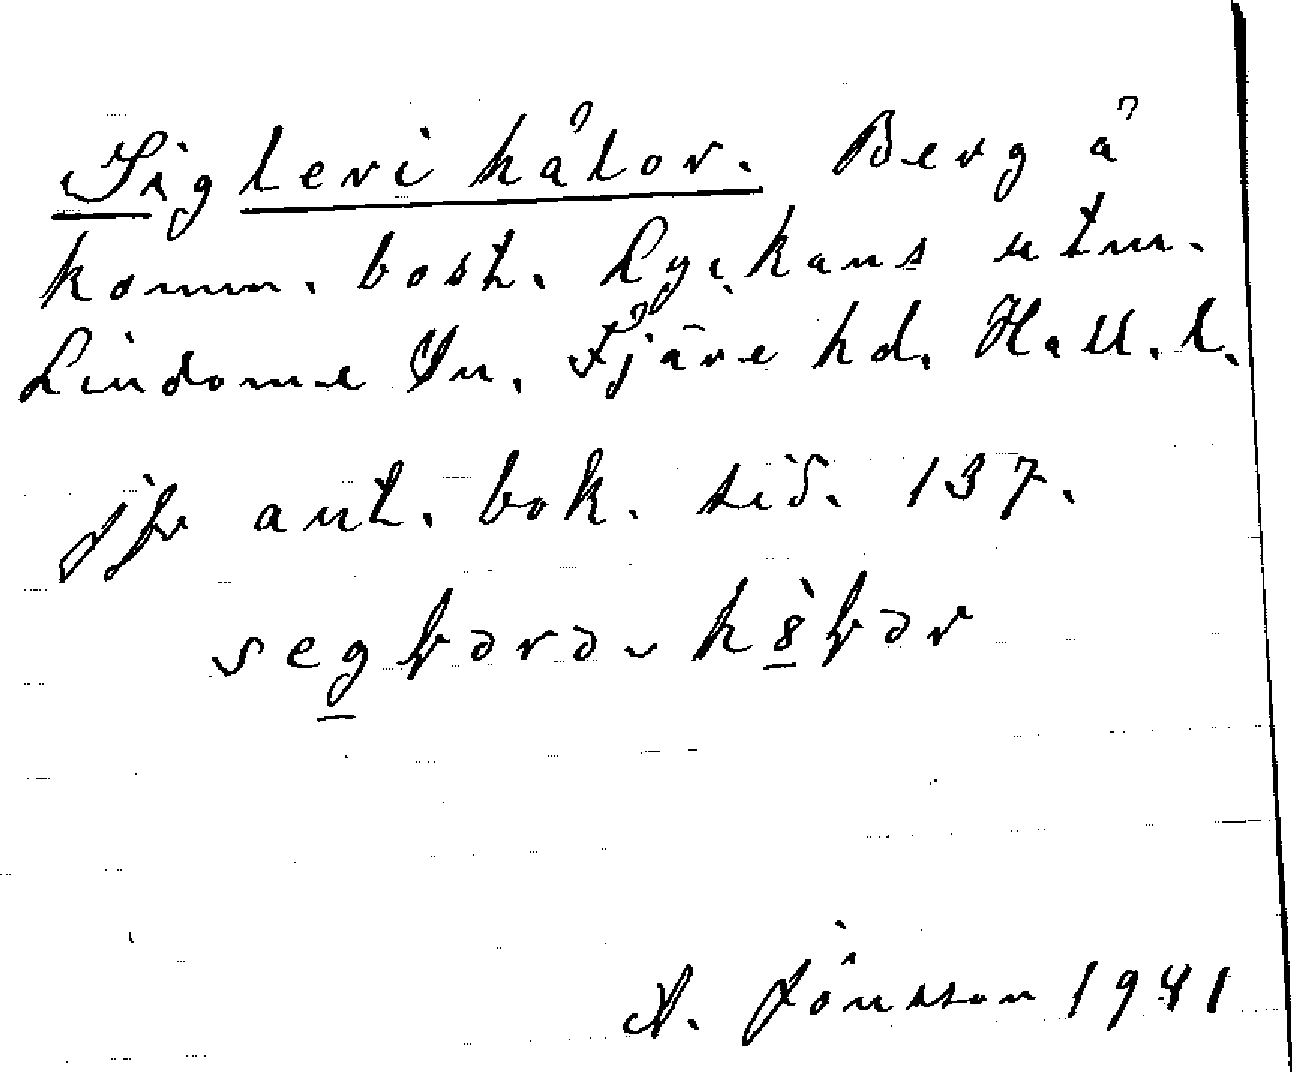 Sigleri kålor. Berg å
komm. bost. Lyckans utm.
Lindome Sn. Fjäre hd. Hall. l.
jfr ant. bok. sid. 137.
A. Jönsson 1941